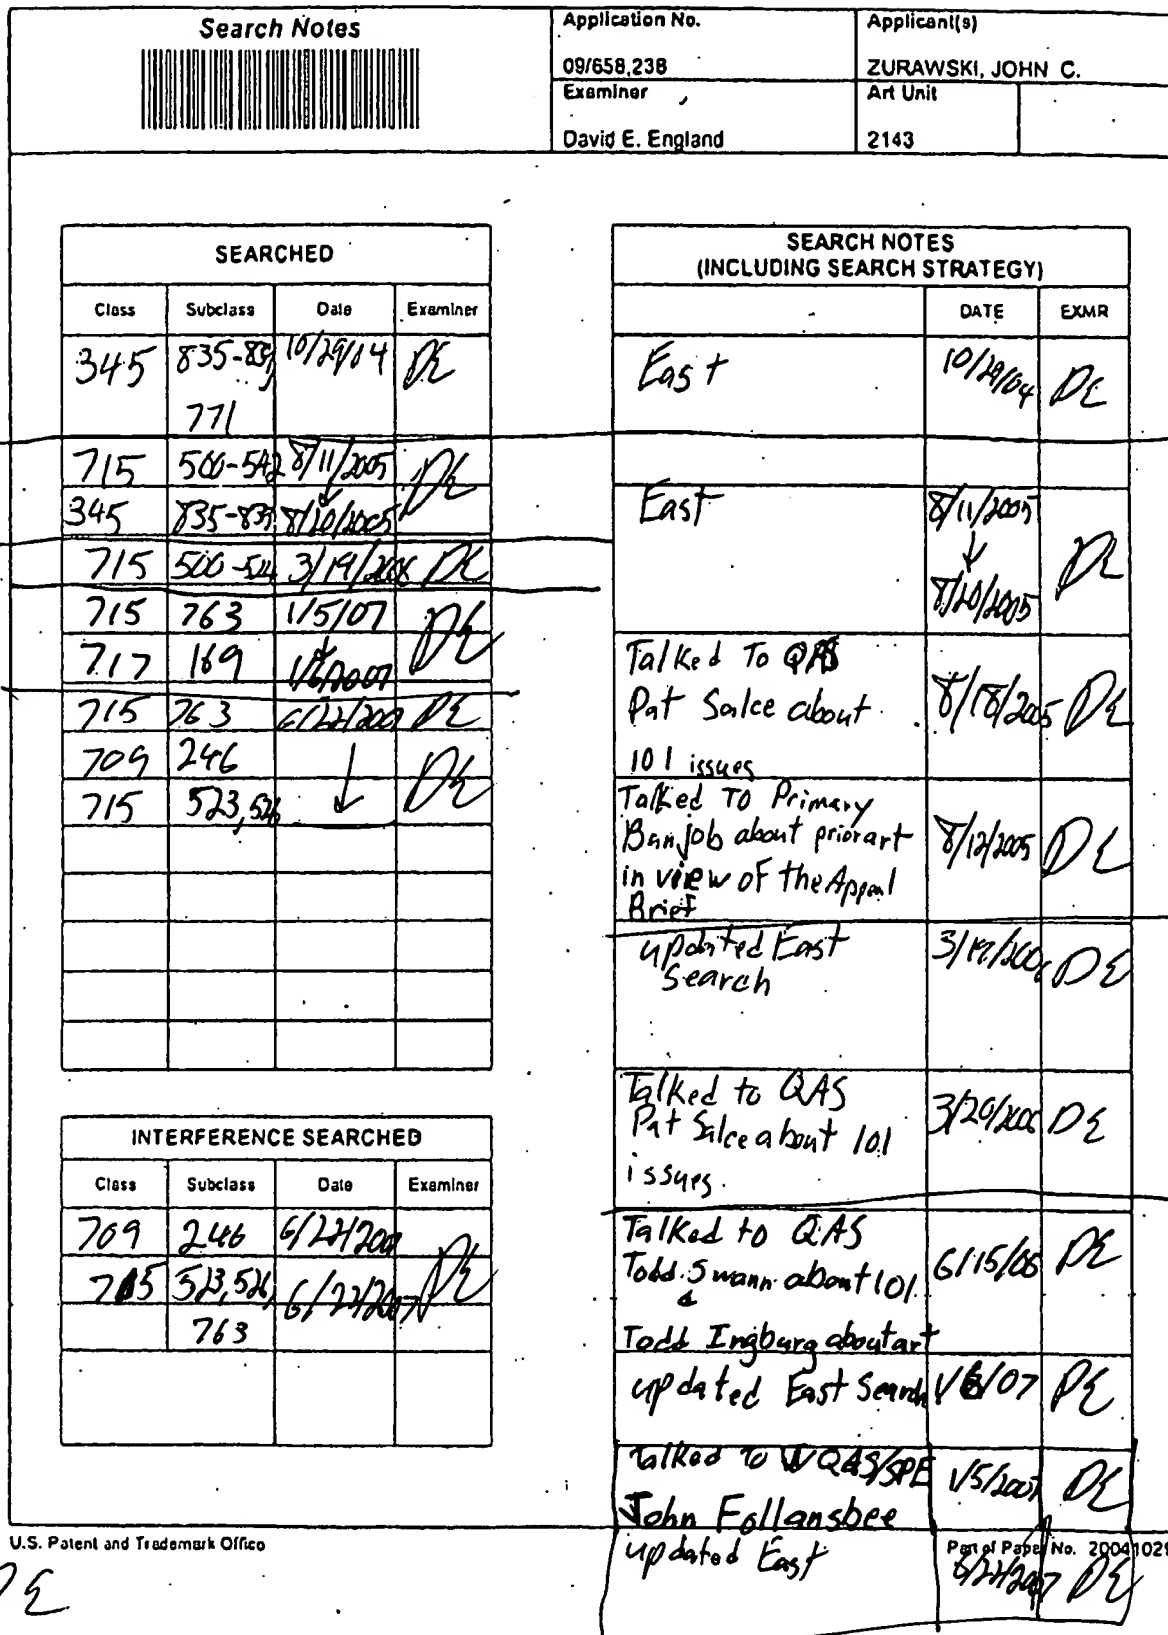 Search Notes
Application No.
09/658,238
Applicant(s)
ZURAWSKI, JOHN C.
Examiner
David E. England
Art Unit
2143
SEARCHED
Class Subclass Date Examiner
345 835-839, 10/29/04 DE
771
715 500-542 8/11/2005 DE
345 835-839 8/20/2005
715 500-542 3/19/2006 DE
715 763 1/5/07 DE
717 169 1/6/2007
715 763 6/22/2007 DE
709 246 DE
715 523,526
INTERFERENCE SEARCHED
Class Subclass Date Examiner
709 246 6/22/2007 DE
715 523,526, 6/22/2007
763
SEARCH NOTES
(INCLUDING SEARCH STRATEGY)
DATE EXMR
East 10/29/04 DE
East 8/11/2005 DE
8/20/2005
Talked To QAS
Pat Salce about 8/18/2005 DE
101 issues
Talked To Primary
Banjob about prior art 8/12/2005 DE
in view of the Appeal
Brief
updated East 3/19/2006 DE
Search
Talked to QAS
Pat Salce about 101 3/20/2006 DE
issues.
Talked to QAS
Todd Swann about 101 6/15/06 DE
&
Todd Ingburg about art
updated East Search 1/6/07 DE
Talked to WQAS/SPE 1/5/2007 DE
John Follansbee
U.S. Patent and Trademark Office
Part of Paper No. 20041029
updated East 6/22/2007 DE
DE